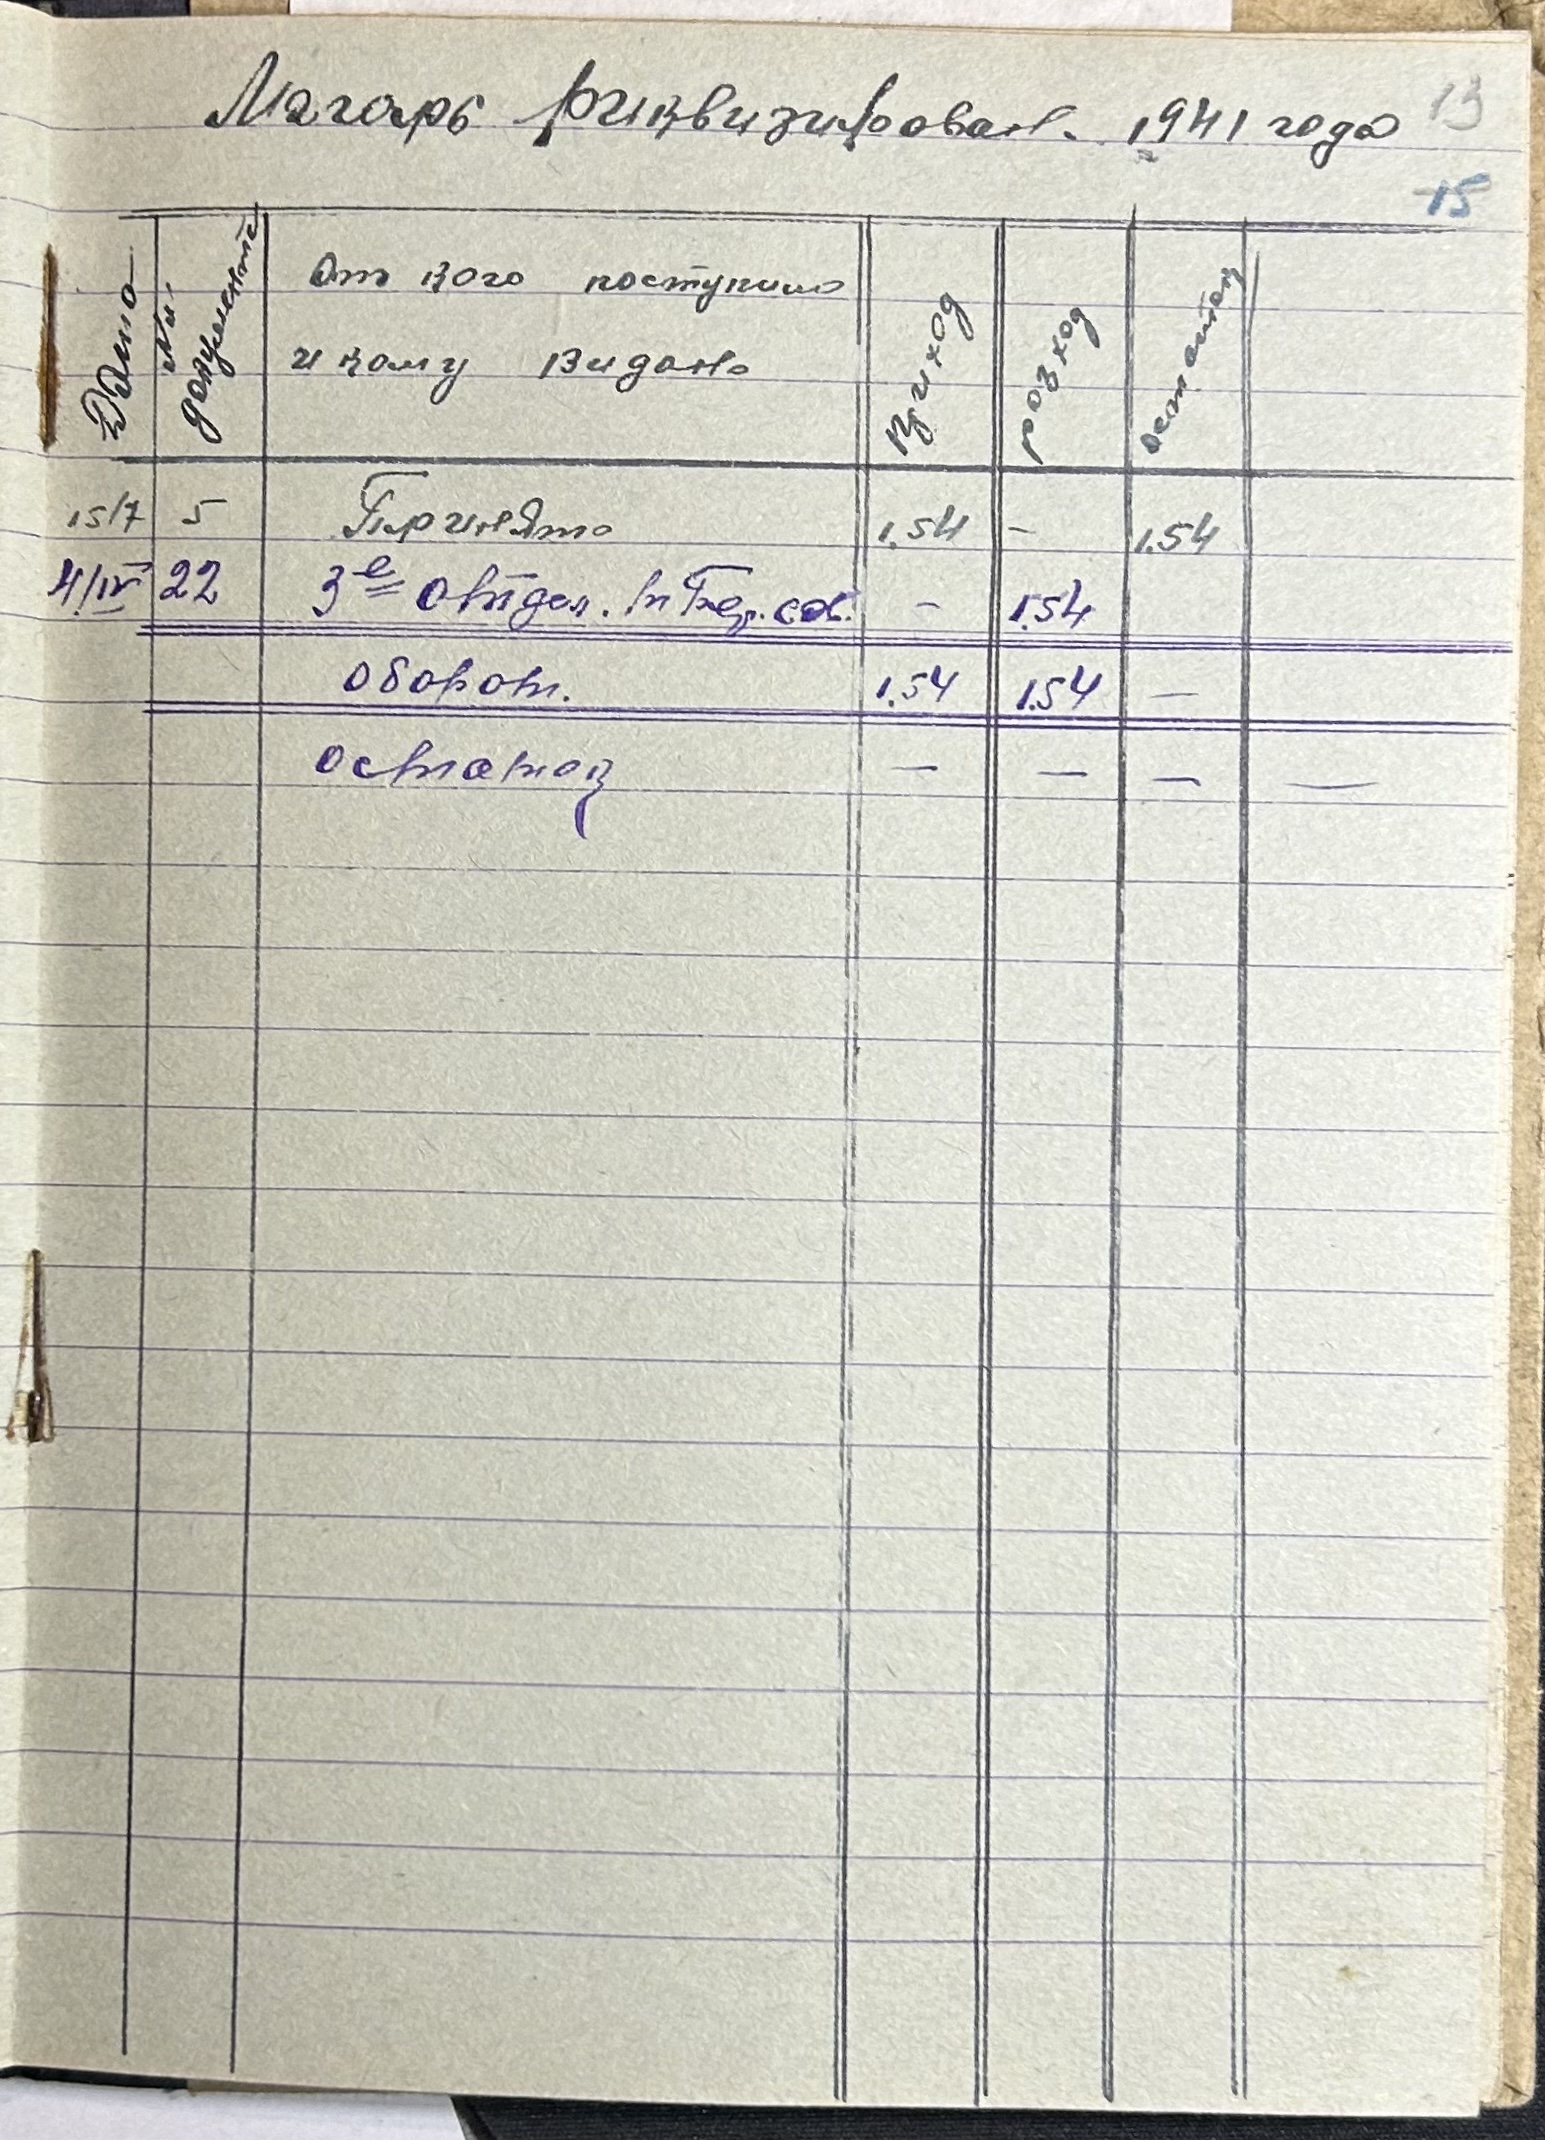 Магарь риквизирован. 1941 года
13
15
Дата
№№ документа
От кого поступило
и кому видано
Приход
розход
остаток
15/7 5 Принято 1.54 - 1.54
4/IV 22 3е отдел. - 1.54
оборот. 1.54 1.54 —
остаток — — — —